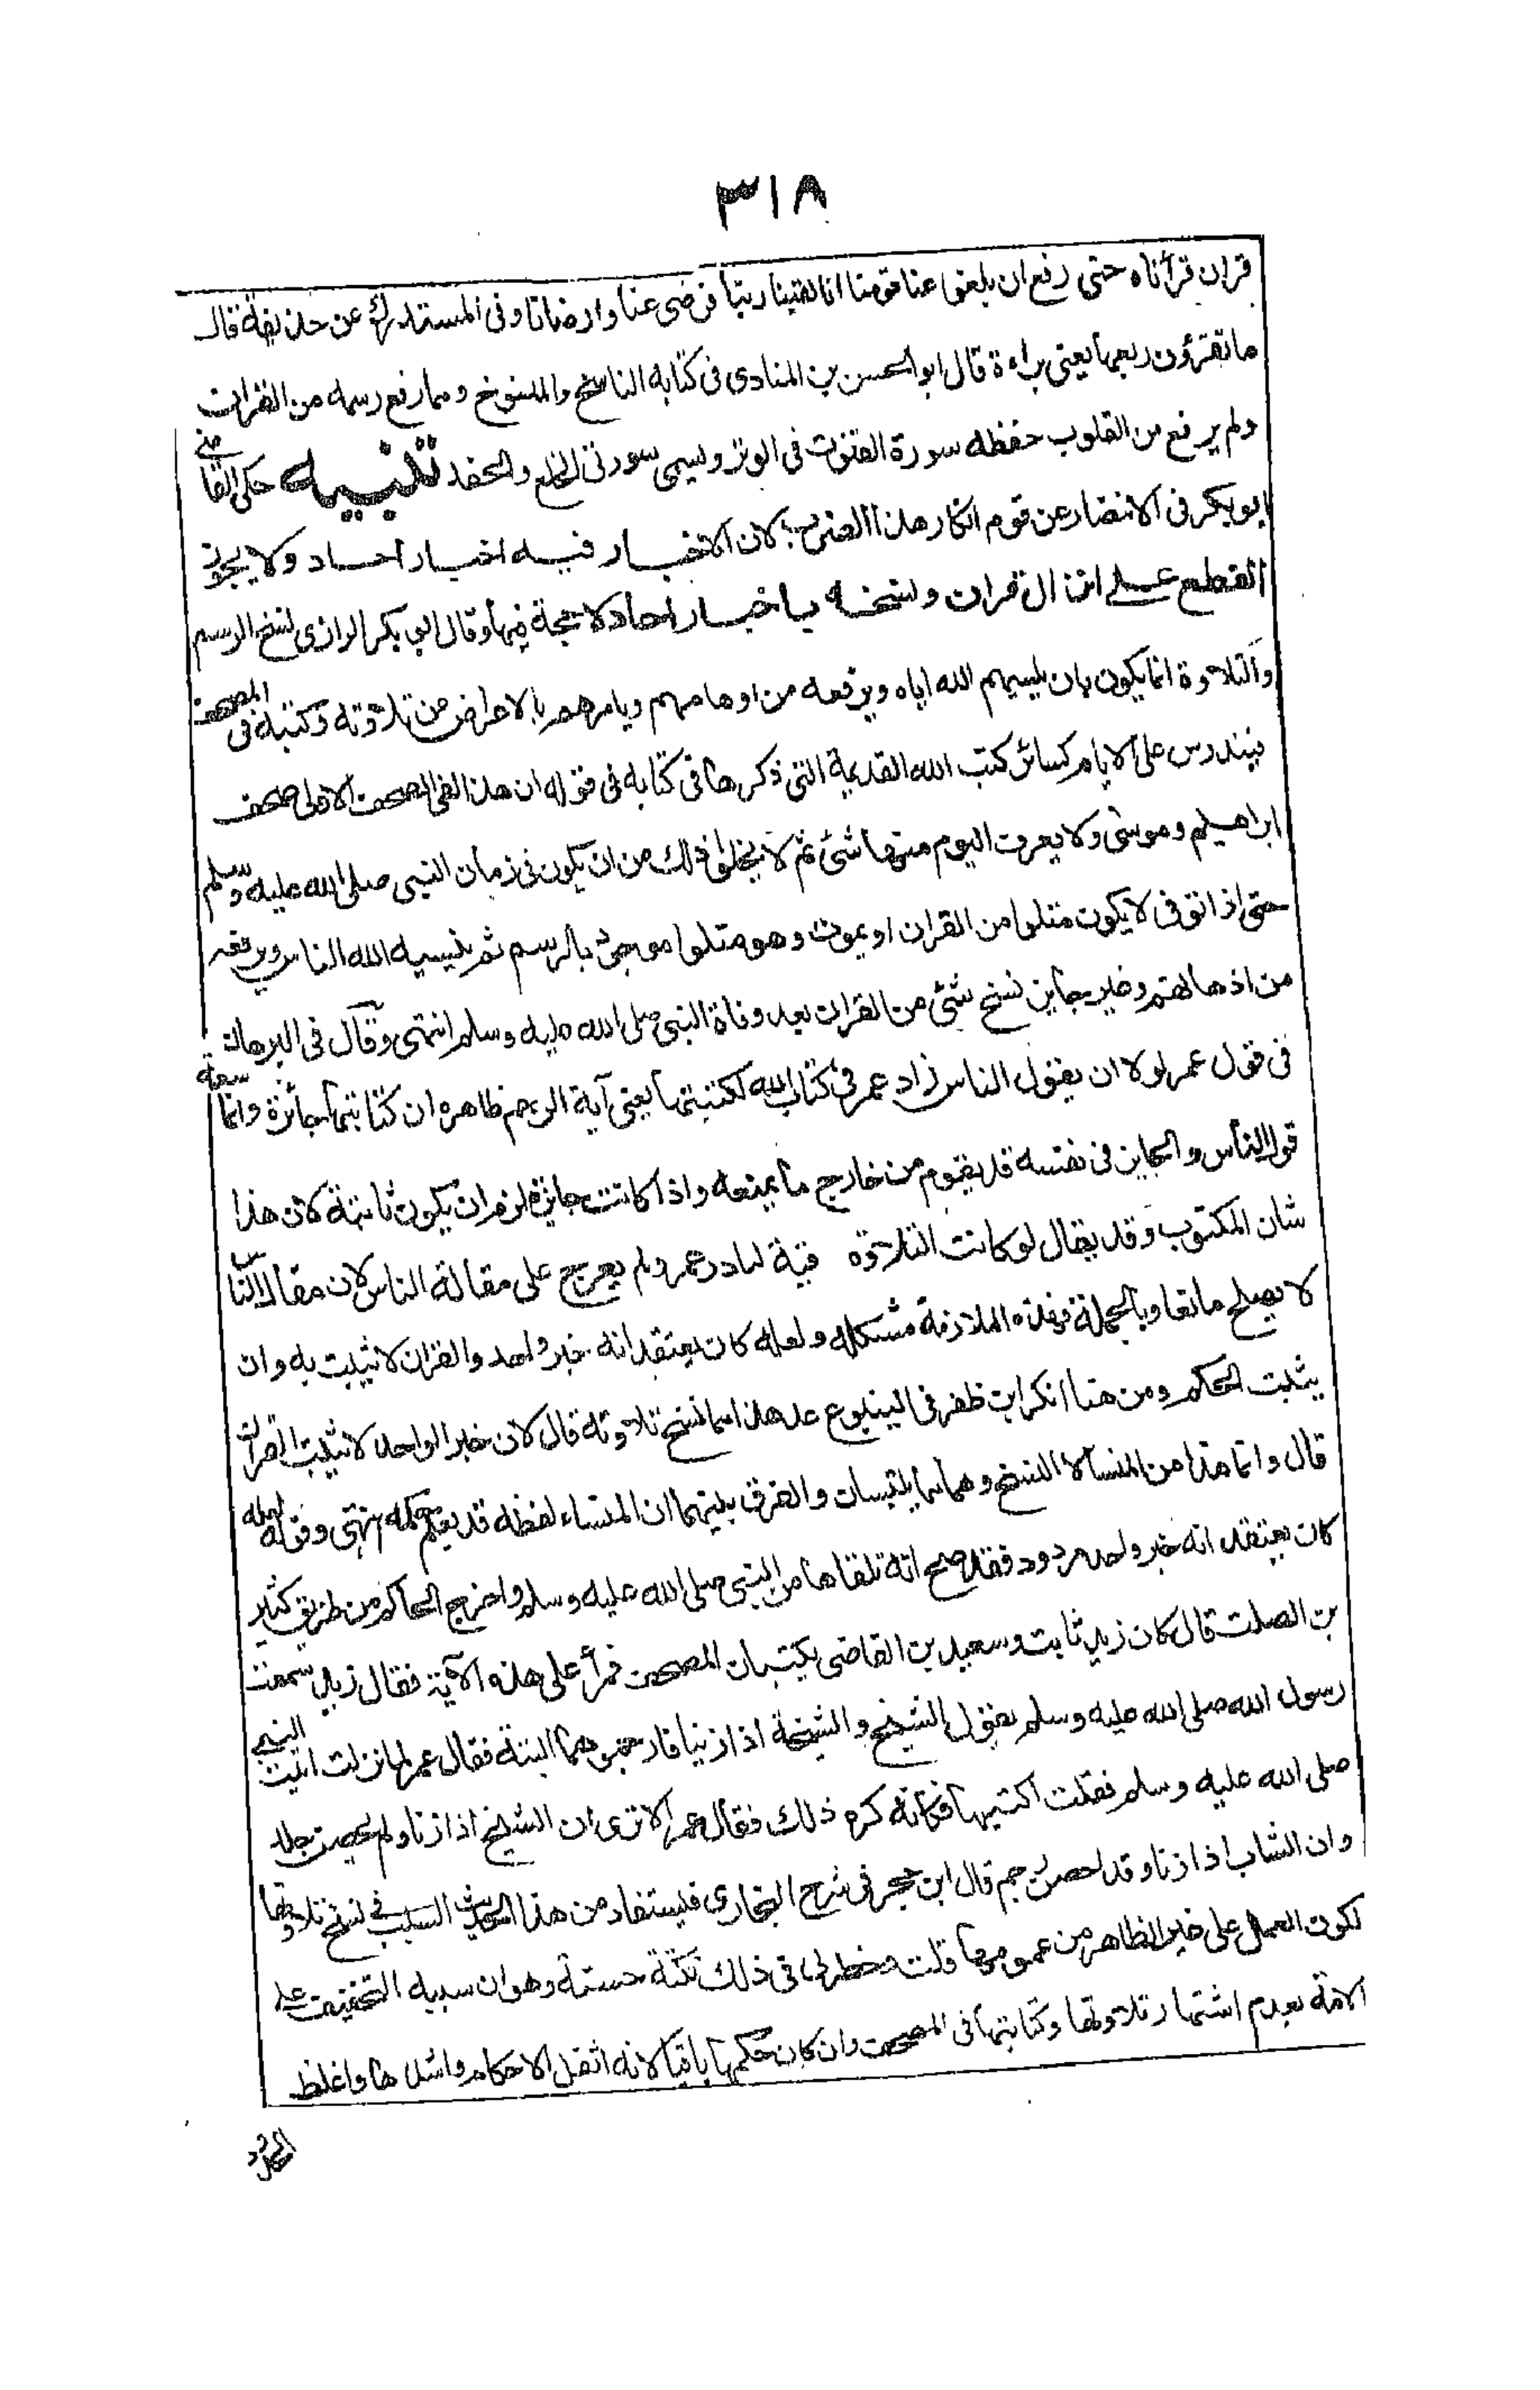 ٣١٨
قران قرأناه حتى رفع ان بلغوا عنا قومنا انا لقينا ربنا فرضى عنا وارضانا وفى المستدرك عن حذيفة قال
ما تقرؤن ربعها يعنى براءة قال ابو الحسن بن المنادى فى كتابه الناسخ والمنسوخ ومما رفع رسمه من القران
ولم يرفع من القلوب حفظه سورة القنوت فى الوتر وتسمى سورتى الخلع والحفد تنبيه حكى القاضى
ابو بكر فى الانتصار عن قوم انكار هذا الضرب؛ لان الاخبار فيه اخبار احاد ولا يجوز
القطع على انزال قران ونسخه باخبار احاد لا حجة فيها وقال ابى بكر الرازى نسخ الرسم
والتلاوة انما يكون بان ينسيهم الله اياه ويرفعه من اوهامهم ويامرهم بالاعراض عن تلاوته وكتبه فى المصحف
فيندرس على الايام كسائر كتب الله القديمة التى ذكرها فى كتابه فى قوله ان هذا لفى الصحف الاولى صحف
ابراهيم وموسى ولا يعرف اليوم منها شئ ثم لا يخلوا ذلك من ان يكون فى زمان النبى صلى الله عليه وسلم
حتى اذا توفى لا يكون متلوا من القران او يموت وهو متلوا موجود بالرسم ثم ينسيه الله الناس ويرفعه
من اذهانهم وغير جايز نسخ شئ من القران بعد وفاة النبى صلى الله عليه وسلم انتهى وقال فى البرهان
فى قول عمر لولا ان يقول الناس زاد عمر فى كتاب الله لكتبتها يعنى آية الرجم ظاهره ان كتابتها جائزة وانما منعه
قول الناس والجايز فى نفسه قد يقوم من خارج ما يمنعه واذا كانت جايزة لزم ان يكون ثابتة لان هذا
شان المكتوب وقد يقال لو كانت التلاوة قية لبادر عمر ولم يعرج على مقالة الناس لان مقال الناس
لا يصلح مانعا وبالجملة فهذه الملازمة مشكلة ولعله كان يعتقد انه خبر واحد والقران لا يثبت به وان
يثبت الحكم ومن هنا انكر ابن ظفر فى الينبوع عد هذا مما نسخ تلاوته قال لان خبر الواحد لا يثبت القران
قال وانما هذا من المنسأ لا النسخ وهما مما يلتبسان والفرق بينهما ان المنساء لفظه قد يعلم حكمه انتهى وقوله لعله
كان يعتقد انه خبر واحد مردود فقد صح انه تلقاها من النبى صلى الله عليه وسلم واخرج الحاكم من طريق كثير
بن الصلت قال كان زيد ثابت وسعيد بن القاضى يكتبان المصحف فمرأ على هذه الآية فقال زيد سمعت
رسول الله صلى الله عليه وسلم يقول الشيخ والشيخة اذا زنيا فارجموهما البتة فقال عمر لما نزلت اتيت النبى
صلى الله عليه وسلم فقلت اكتبها فكانه كره ذلك فقال عمر الا ترى ان الشيخ اذا زنا ولم يحصن جلد
وان الشاب اذا زنا وقد احصن رجم قال ابن حجر فى شرح البخارى فيستفاد من هذا الحديث السبب فى نسخ تلاوتها
لكون العمل على غير الظاهر من عمومها قلت وخطر لى فى ذلك نكتة حسنة وهو ان سببه التخفيف على
الامة بعدم اشتهار تلاوتها وكتابتها فى المصحف وان كان حكمها باقيا لانه اثقل الاحكام واشدها واغلظ